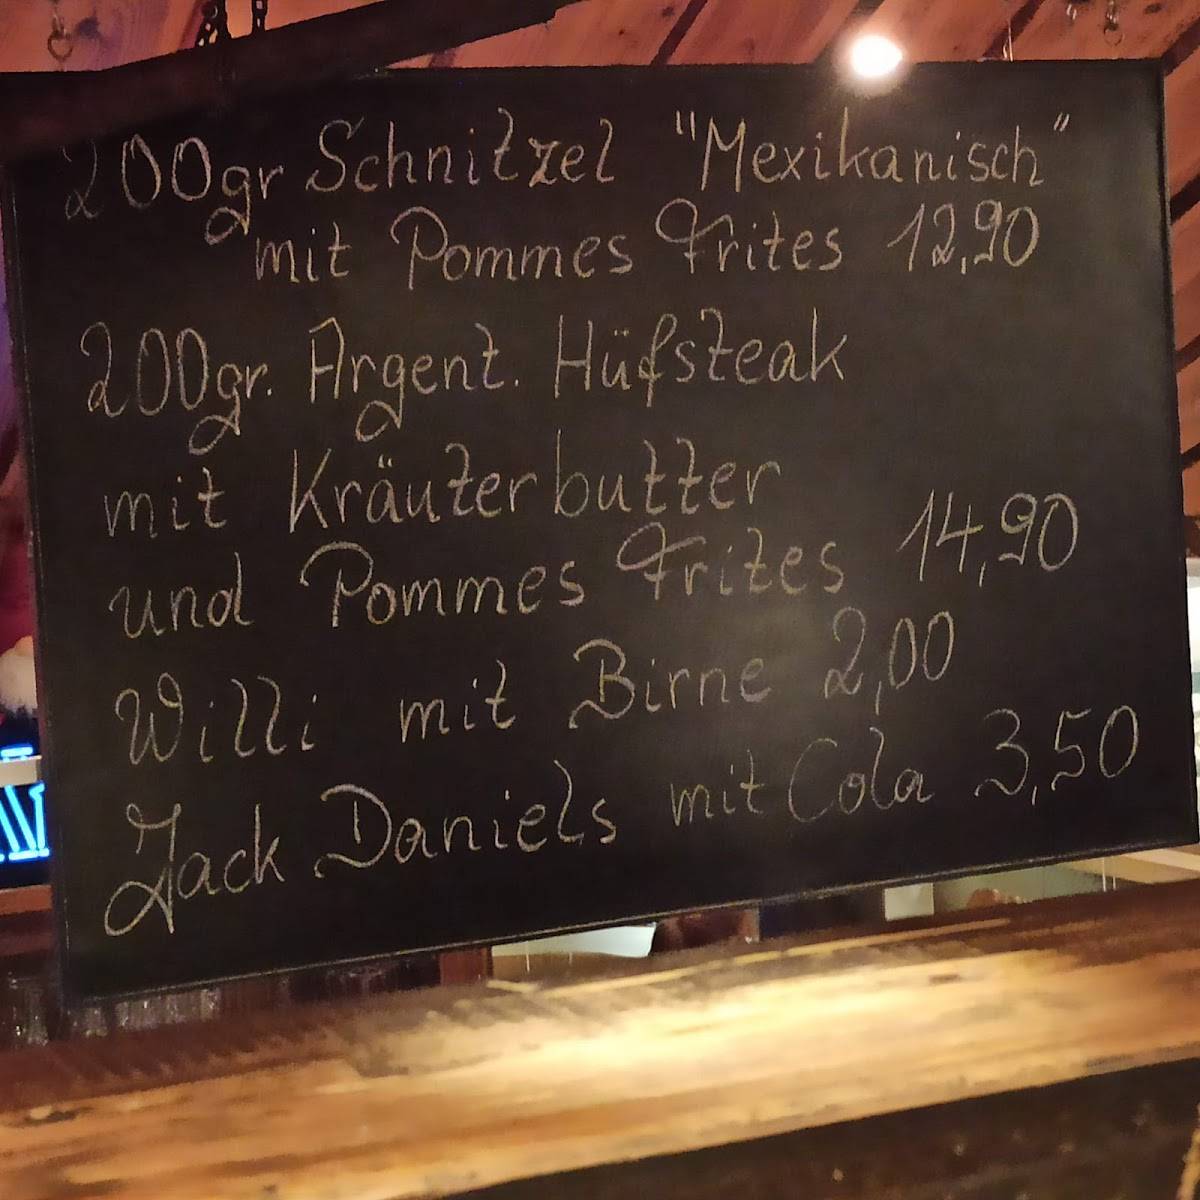 200gr Schnitzel "Mexikanisch"
mit Pommes Frites 12,90
200gr. Argent. Hüfsteak
mit Kräuterbutter
und Pommes Frites 14,90
Willi mit Birne 2,00
Jack Daniels mit Cola 3,50